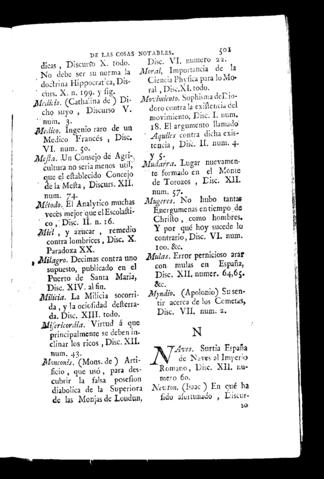 DE LAS COSAS NOTABLES. 501
dicas, Discurso X. todo.
No debe ser su norma la
doctrina Hippocratica, Dis-
curs. X. n. 199. y sig.
Medicis. (Cathalina de) Di-
cho suyo, Discurso V.
num. 3.
Medico. Ingenio raro de un
Medico Francés, Disc.
VI. num. 50.
Mesta. Un Consejo de Agri-
cultura no seria menos util,
que el establecido Concejo
de la Mesta, Discurs. XII.
num. 74.
Método. El Analytico muchas
veces mejor que el Escolasti-
co, Disc. II. n. 16.
Miel, y azucar, remedio
contra lombrices, Disc. X.
Paradoxa XX.
Milagro. Decimas contra uno
supuesto, publicado en el
Puerto de Santa Maria,
Disc. XIV. al fin.
Milicia. La Milicia socorri-
da, y la ociosidad desterra-
da. Disc. XIII. todo.
Misericordia. Virtud á que
principalmente se deben in-
clinar los ricos, Disc. XII.
num. 43.
Monconis. (Mons. de) Arti-
ficio, que usó, para des-
cubrir la falsa posesion
diabolica de la Superiora
de las Monjas de Loudun,
Disc. VI. numero 22.
Moral, Importancia de la
Ciencia Physica para lo Mo-
ral, Disc. XI. todo.
Movimiento. Sophisma de Dio-
doro contra la existencia del
movimiento, Disc. I. num.
18. El argumento llamado
Aquiles contra dicha exis-
tencia, Disc. II. num. 4.
y 5.
Mudarra. Lugar nuevamen-
te formado en el Monte
de Torozos, Disc. XII.
num. 57.
Mugeres. No hubo tantas
Energumenas en tiempo de
Christo, como hombres.
Y por qué hoy sucede lo
contrario, Disc. VI. num.
100. &c.
Mulas. Error pernicioso arar
con mulas en España,
Disc. XII. numer. 64, 65.
&c.
Myndio. (Apolonio) Su sen-
tir acerca de los Cometas,
Disc. VII. num. 2.
N
NAves. Surtía España
de Naves al Imperio
Romano, Disc. XII. nu-
mero 60.
Neuton. (Isac) En qué ha
sido afortunado, Discur-
so